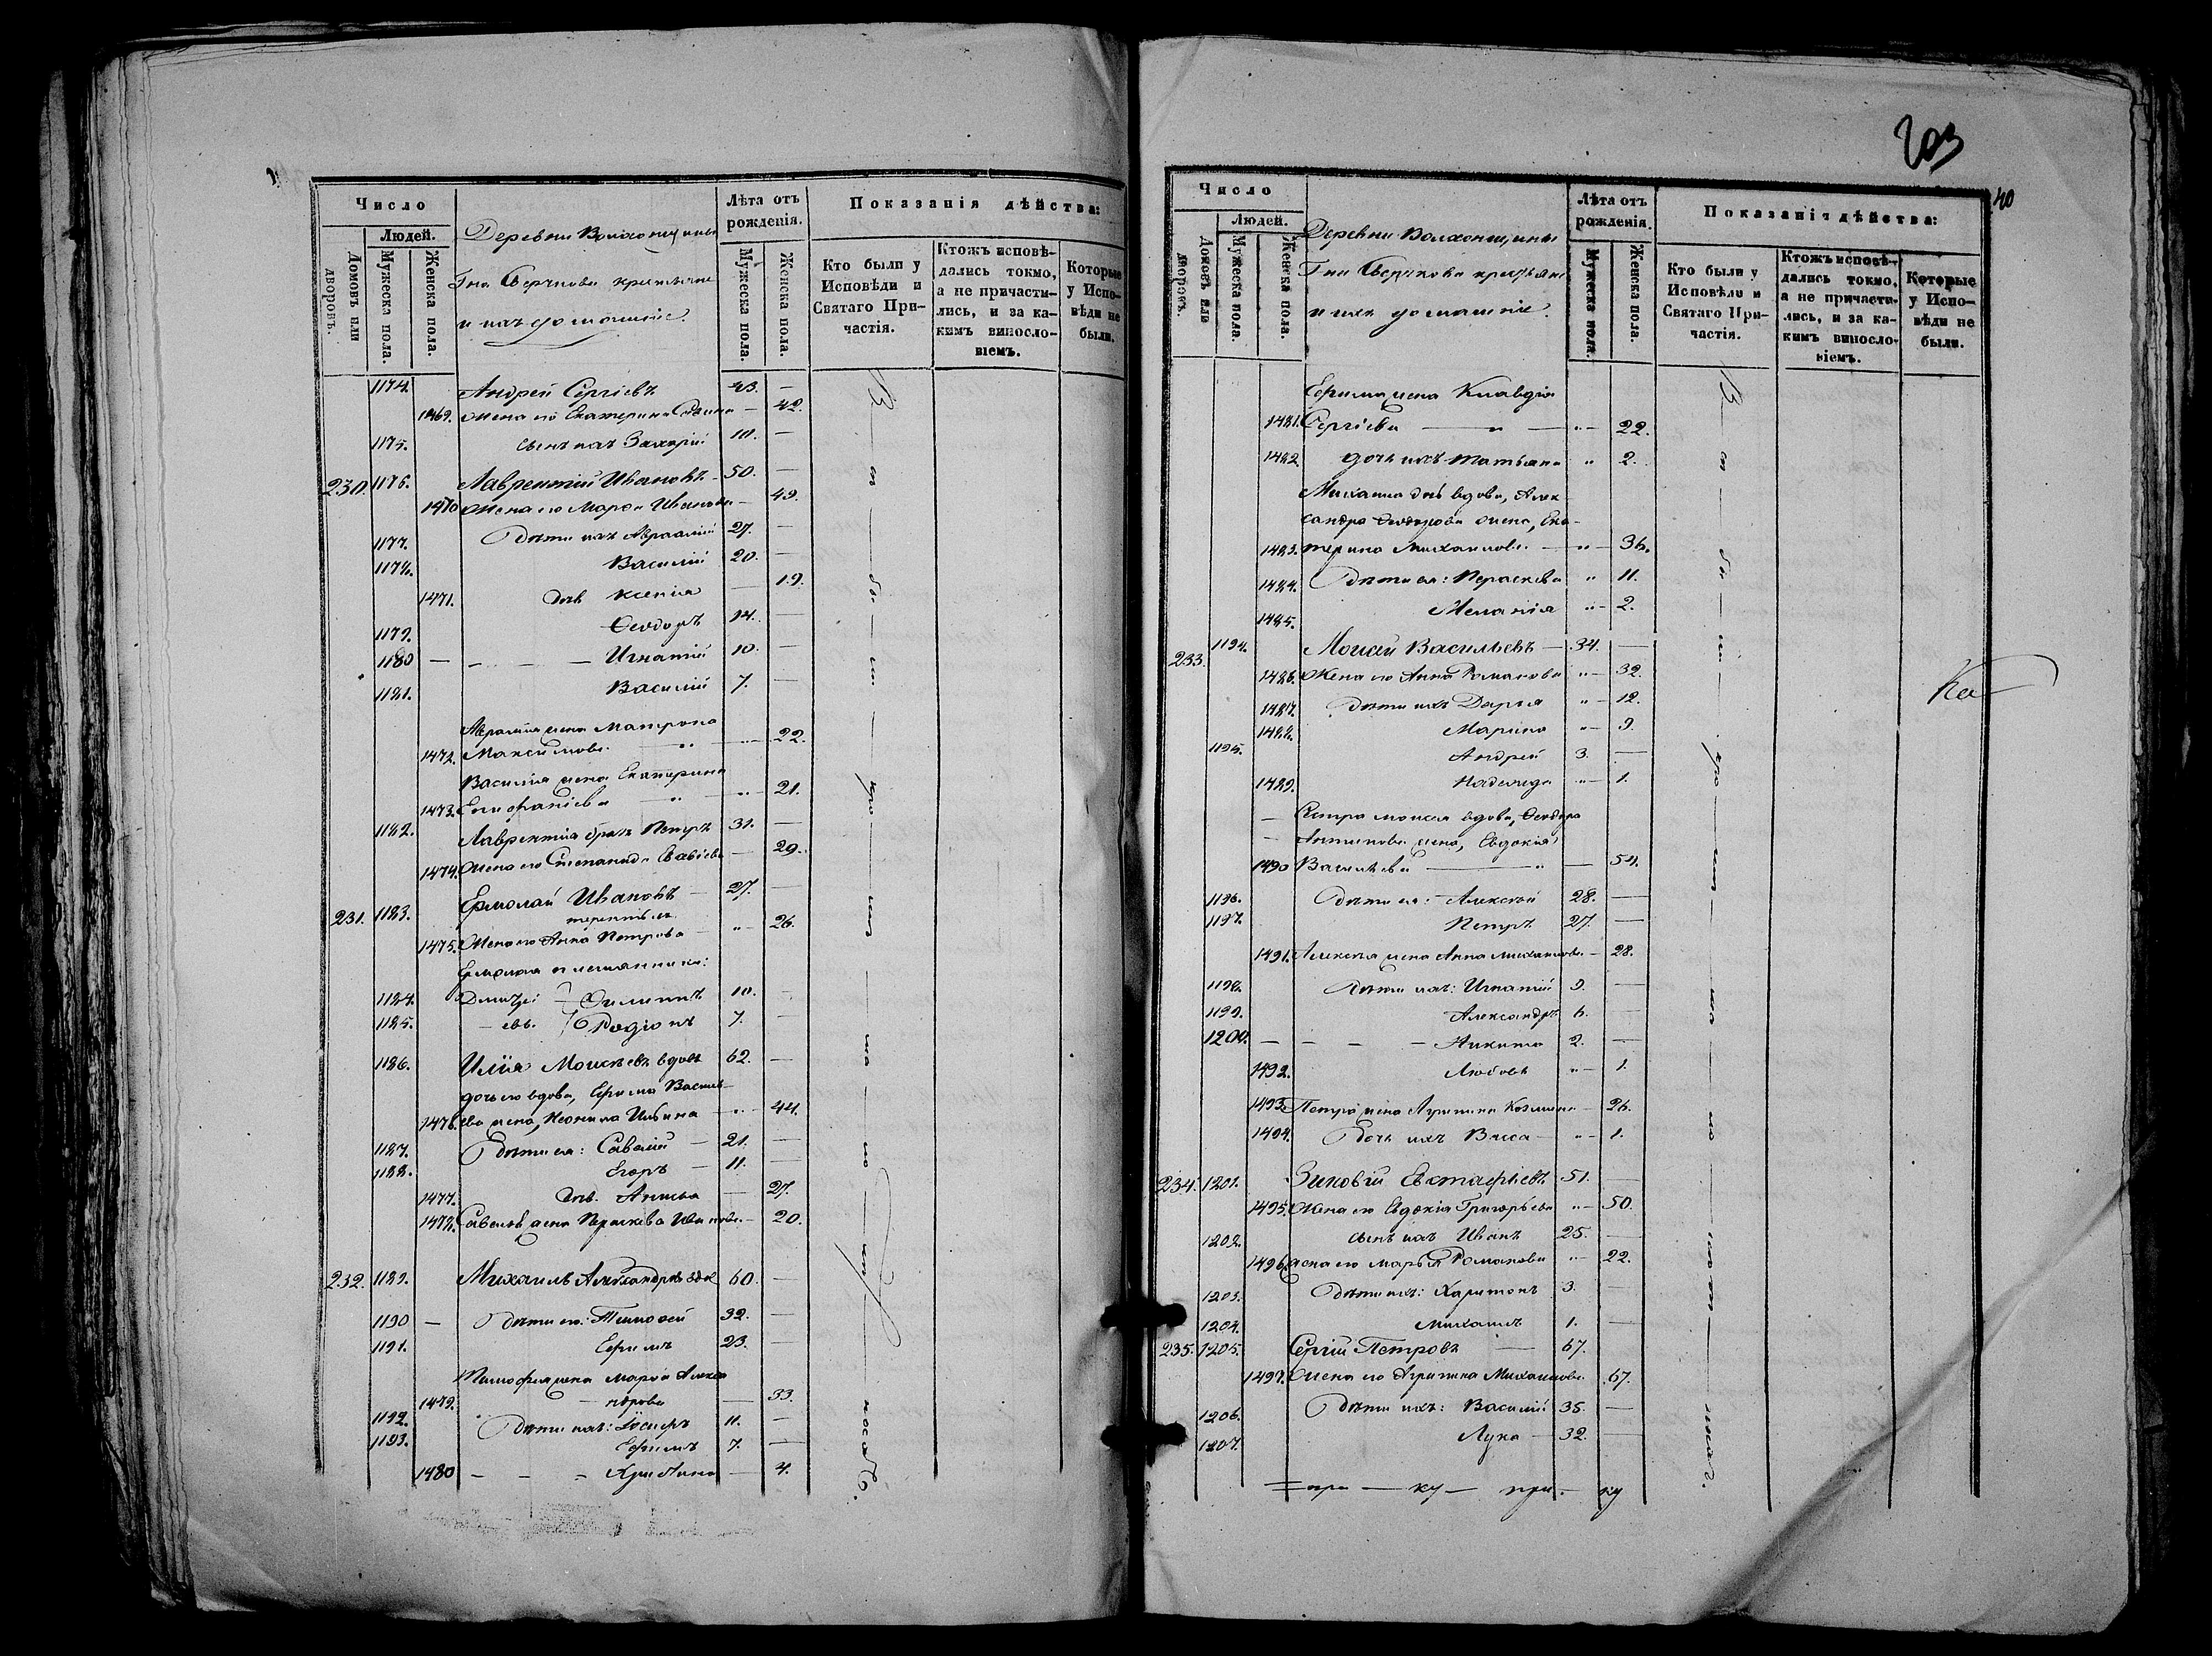 Число
Людей.
Домовъ или дворовъ.
Мужеска пола.
Женска пола.
Деревни Волхонщины
Гна Сверчкова крестьяне
и ихъ домашніе.
Лѣта отъ рожденія.
Мужеска пола.
Женска пола.
Показанія дѣйства:
Кто были у Исповѣди и Святаго Причастія.
Ктожъ исповѣдались токмо, а не причастились, и за какимъ винословіемъ.
Которые у Исповѣди не были.
1174. Андрей Сергіевъ 43. —
1469. Жена его Екатерина — 42.
1175. сынъ ихъ Захарій 10. —
230. 1176. Лаврентій Ивановъ 50. —
1470 Жена его Марфа Иванова — 49.
1177. Дѣти ихъ Авраамій 27. —
1178. Василій 20. —
1471. дочь Ксенія — 19.
1179. Ѳеодоръ 14. —
1180 — — — — Игнатій 10. —
1181. Василій 7. —
Авраамія жена Матрона
1472. Максимова " — 22.
Василія жена Екатерина
1473. Епифаніева — " — 21.
1182. Лаврентія братъ Петръ 31. —
1474. Жена его Степанида — 29.
231. 1183. Ермолай Ивановъ — 27. —
1475. Жена его Анна Петрова — " — 26.
Ермолая племянники:
1184. Дмитрі Филиппъ 10. —
1185. — евы. Родіонъ 7. —
1186. Илія Моисѣевъ вдовъ 62. —
дочь его вдова, Ефима Василь-
1476. ева жена, Неонила Ильина — " — 44.
1187. Дѣти ея: Савелій — 21. —
1188. Егоръ — 11. —
1477. дочь Анисья — 27.
1478. Савелія жена Параскева Иванова — 20.
232. 1189. Михаилъ Александровъ вдов 60. —
1190 — Дѣти его: Тимофей 32. —
1191. Ефимъ 23. —
Тимофея жена Марфа Алекса
1479. — ндрова — 33.
1192. Дѣти ихъ: Іосифъ 11. —
1193. Ефимъ 7. —
1480 — — — Христина — 4.
203
40
Число
Людей.
Домовъ или дворовъ.
Мужеска пола.
Женска пола.
Деревни Волхонщины
Гна Сверчкова крестьяне
и ихъ домашніе.
Лѣта отъ рожденія.
Мужеска пола.
Женска пола.
Показанія дѣйства:
Кто были у Исповѣди и Святаго Причастія.
Ктожъ исповѣдались токмо, а не причастились, и за какимъ винословіемъ.
Которые у Исповѣди не были.
Ефима жена Клавдія
1481. Сергіева — " — " — 22.
1482 дочь ихъ Татьяна " 2.
Михаила дочь вдова, Алек-
сандра Ѳеодорова жена, Ека-
1483. терина Михаилова — " — 36.
1484. Дѣти ея: Параскева " 11.
1485. Меланія " — 2.
233. 1194. Моисей Васильевъ — 34. —
1486. Жена его Анна Романова " — 32.
1487. Дѣти ихъ Дарья " — 12.
1488. Марина " — 9.
1195. Андрей 3. —
1489. Надежда " — 1.
— Сестра Моисея вдова, Ѳеодора
— Антипова жена, Евдокія
1490 Васильева — " — 54.
1196. Дѣти ея: — Алексѣй 28. —
1197. Петръ 27. —
1491. Алексѣя жена Анна Михаилова — 28.
1198. Дѣти ихъ: Игнатій 9. —
1199. Александръ 6. —
1200. — — — — Никита 2. —
1492. Любовь " — 1.
1493. Петра жена Агрипина Козмина — 26.
1494. Дочь ихъ Васса — " — 1.
234. 1201. Зиновій Евстафіевъ 51. —
1495. Жена его Евдокія Григорьева " — 50.
1202. сынъ ихъ Иванъ 25. —
1496. жена его Марья Романова " — 22.
1203. Дѣти ихъ: Харитонъ 3. —
1204. Михаилъ 1. —
235. 1205. Сергій Петровъ — 67. —
1497. Жена его Агрипина Михаилова 67.
1206. Дѣти ихъ: Василій 35. —
1207. Лука — 32. —